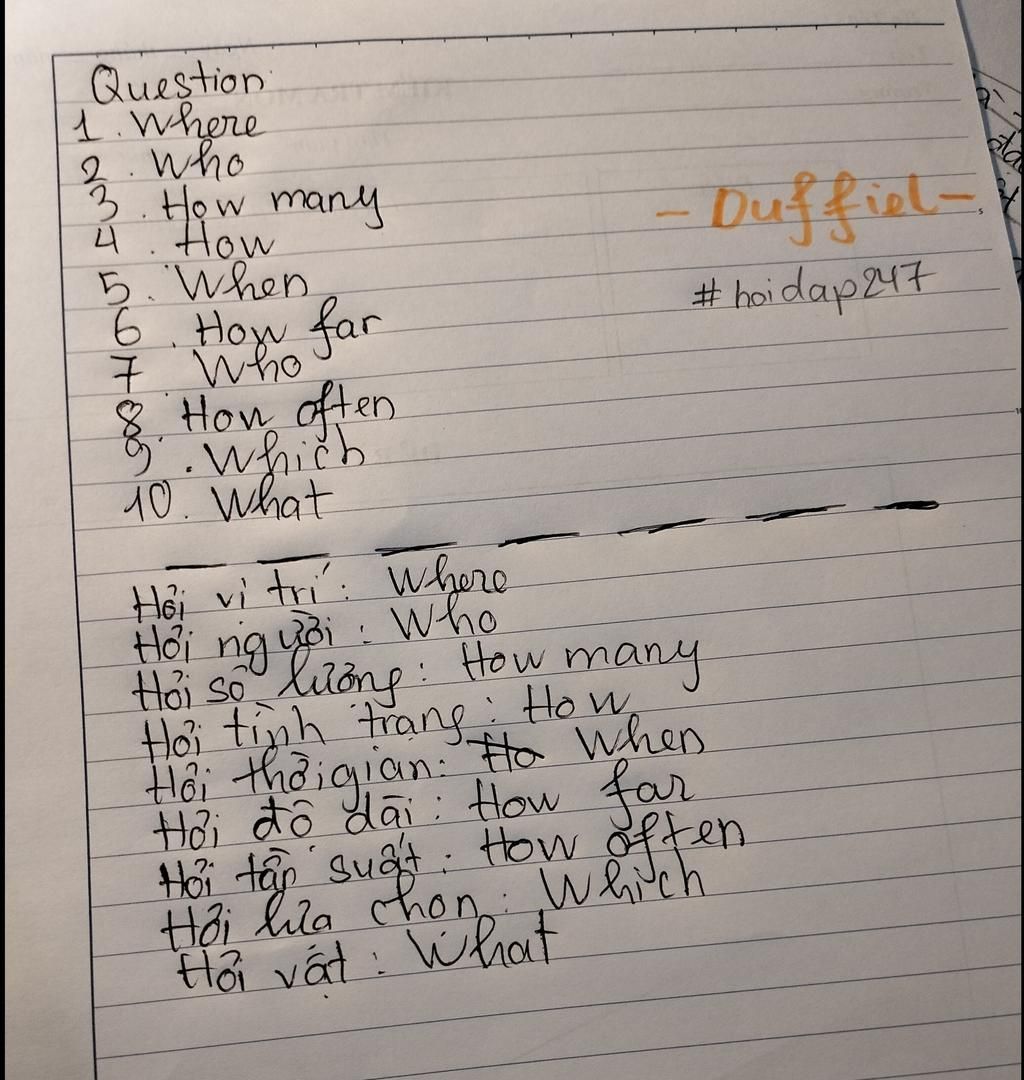 Question
1. Where
2. Who
3. How many
4. How
5. When
6. How far
7 Who
8. How often
9. Which
10. What
- Duffiel -
#hoidap247
Hỏi vị trí: Where
Hỏi người: Who
Hỏi số lượng: How many
Hỏi tình trạng: How
Hỏi thời gian: Ho When
Hỏi độ dài: How far
Hỏi tần suất: How often
Hỏi lựa chọn: Which
Hỏi vật: What